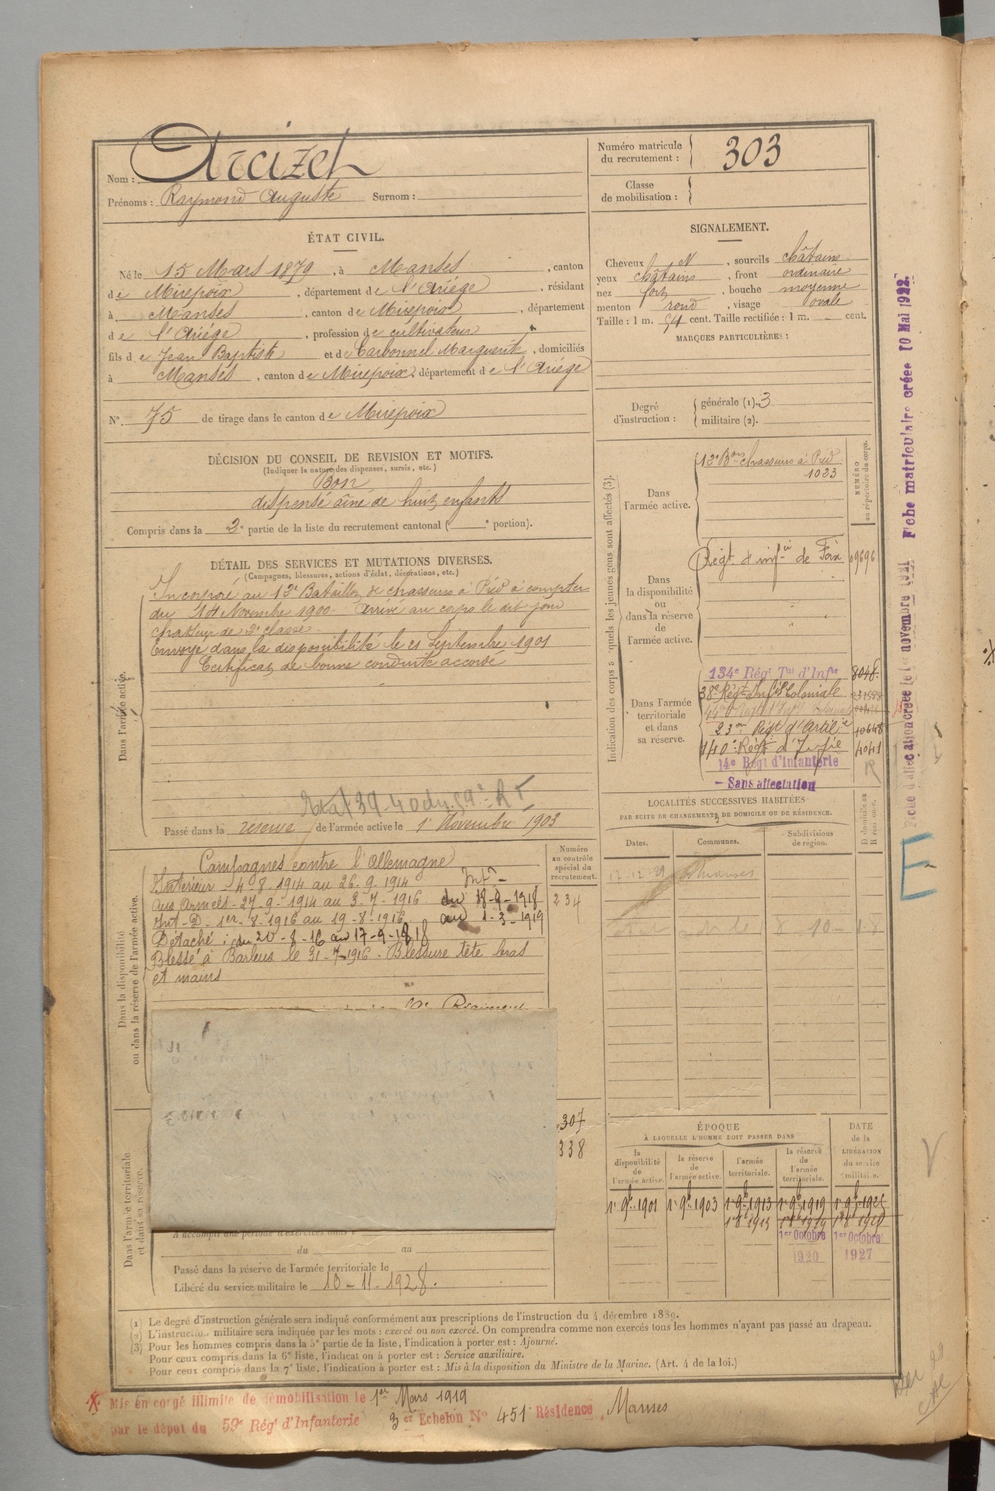 Nom : Arcizet
Prénoms : Raymond Auguste Surnom :
Numéro matricule du recrutement : 303
Classe de mobilisation :
ÉTAT CIVIL.
Né le 15 Mars 1879, à Manses, canton
de Mirepoix, département de l'Ariège, résidant
à Manses, canton de Mirepoix, département
de l'Ariège, profession de cultivateur
fils de Jean Baptiste et de Carbonnel Marguerite, domiciliés
à Manses, canton de Mirepoix, département de l'Ariège
N° 75 de tirage dans le canton de Mirepoix
SIGNALEMENT.
Cheveux N, sourcils châtains
yeux châtains, front ordinaire
nez fort, bouche moyenne
menton rond, visage ovale
Taille : 1 m. 54 cent. Taille rectifiée : 1 m. cent.
MARQUES PARTICULIÈRES :
Degré d'instruction : générale (1). 3
militaire (2).
DÉCISION DU CONSEIL DE REVISION ET MOTIFS.
(Indiquer la nature des dispenses, sursis, etc.)
Bon
dispensé aîné de huit enfants
Compris dans la 2e partie de la liste du recrutement cantonal ( e portion).
DÉTAIL DES SERVICES ET MUTATIONS DIVERSES.
(Campagnes, blessures, actions d'éclat, décorations, etc.)
Dans l'armée active.
Incorporé au 12e Bataillon de chasseurs à Pied à compter
du 14 Novembre 1900 Arrivé au corps le dit jour
chasseur de 2e classe
Envoyé dans la disponibilité le 21 Septembre 1901
Certificat de bonne conduite accordé
39-40 du 59e R I
Passé dans la réserve de l'armée active le 1er Novembre 1903
Dans la disponibilité ou dans la réserve de l'armée active.
Numéro au contrôle spécial du recrutement.
234
Campagnes contre l'Allemagne
Intérieur 4-8-1914 au 26-9-1914 Int -
Aux Armées - 27-9-1914 au 3-7-1916 du 18-9-1918
Int-D. 1er-8-1916 au 19-8-1916 au 1-3-1919
Détaché : du 20-8-16 au 17-9-1918
Blessé à Barleux le 31-7-1916 - Blessure tête bras
et mains
Régiment
307
338
Dans l'armée territoriale et dans sa réserve.
A accompli une période d'exercices dans l
du au
Passé dans la réserve de l'armée territoriale le
Libéré du service militaire le 10-11-1928.
Indication des corps auxquels les jeunes gens sont affectés (3).
NUMÉRO au répertoire du corps.
Dans l'armée active.
12e Bon chasseurs à Pied
1033
Dans la disponibilité ou dans la réserve de l'armée active.
Régt d'inf-ie de Foix 09696
Dans l'armée territoriale et dans sa réserve.
134e Régt Tal d'Infie 8048
38e Régt Inf-ie Coloniale
23me Régt d'Artil-ie 10648
140e Régt d'Infie 4041
14e Régt d'Infanterie
- Sans affectation
R
LOCALITÉS SUCCESSIVES HABITÉES
PAR SUITE DE CHANGEMENTS DE DOMICILE OU DE RÉSIDENCE.
Dates. Communes. Subdivisions de région. D domicile ou R résidence.
12-12-29 Manses
ÉPOQUE
À LAQUELLE L'HOMME DOIT PASSER DANS
la disponibilité de l'armée active. la réserve de l'armée active. l'armée territoriale. la réserve de l'armée territoriale. DATE de la LIBÉRATION du service militaire.
1er 9bre 1901 1er 9bre 1903 1er 9bre 1913 1er 9bre 1919
1er Octobre 1920 1er Octobre 1927
Fiche d'affectation créée le 1er novembre 1921 Fiche matriculaire créée 10 Mai 1922.
E
V
(1) Le degré d'instruction générale sera indiqué conformément aux prescriptions de l'instruction du 4 décembre 1889.
(2) L'instruction militaire sera indiquée par les mots : exercé ou non exercé. On comprendra comme non exercés tous les hommes n'ayant pas passé au drapeau.
(3) Pour les hommes compris dans la 5e partie de la liste, l'indication à porter est : Ajourné.
Pour ceux compris dans la 6e liste, l'indication à porter est : Service auxiliaire.
Pour ceux compris dans la 7e liste, l'indication à porter est : Mis à la disposition du Ministre de la Marine. (Art. 4 de la loi.)
Mis en congé illimité de démobilisation le 1er Mars 1919
par le dépôt du 59e Régt d'Infanterie 3er Echelon N° 451 Résidence Manses